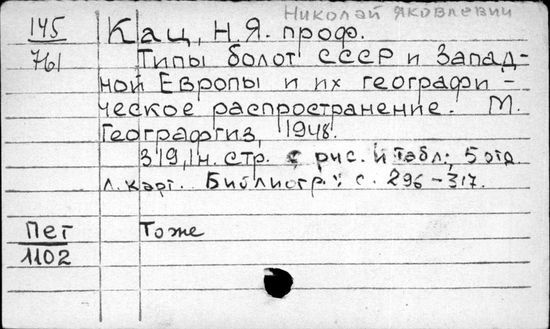 Николай Яковлевич
145 Кац, Н.Я. проф.
761 Типы болот СССР и Запад-
ной Европы и их географи-
ческое распространение. М.
Географгиз, 1948.
319, 1н. стр. с рис. и табл.; 5 отд.
л. карт. Библиогр.: с. 296-317.
Пег Тоже
1102